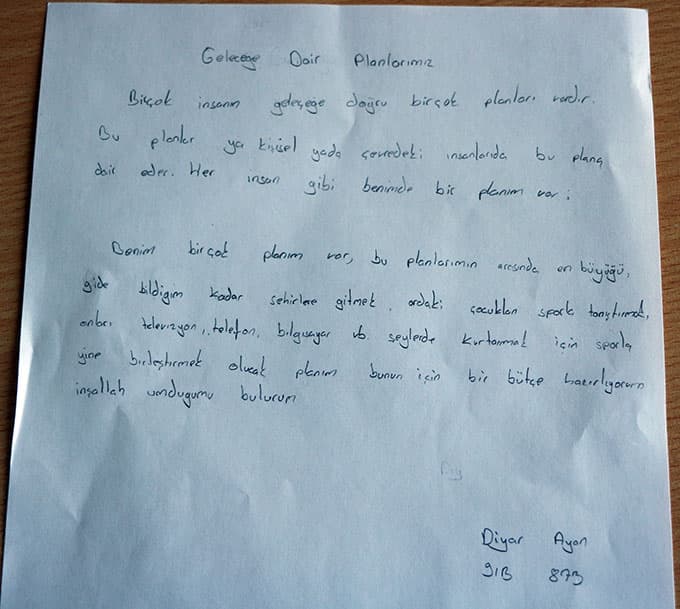 Geleceğe Dair Planlarımız
Birçok insanın geleçeğe doğru birçok planları vardır.
Bu planlar ya kişisel yada çevredeki insanlarıda bu plana
dair eder. Her insan gibi benimde bir planım var;
Benim birçok planım var, bu planlarımın arasında en büyüğü,
gide bildiğim kadar şehirlere gitmek, ordaki çocukları sporla tanıştırmak,
onları televizyon, telefon, bilgisayar vb. şeylerde kurtarmak için sporla
yine birleştirmek olucak planım bunun için bir bütçe hazırlıyorum
inşallah umduğumu bulurum
Diy
Diyar Ayan
9/B 873